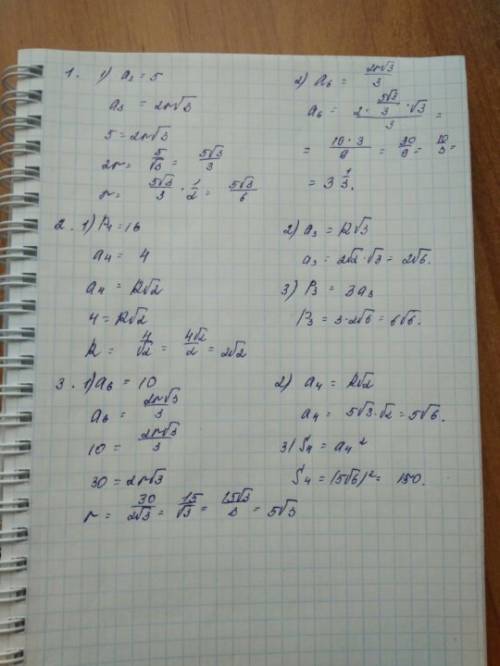 1. 1) a₃ = 5
a₃ = 2r√3
5 = 2r√3
2r = 5/√3 = 5√3/3
r = 5√3/3 · 1/2 = 5√3/6
2) a₆ = 2r√3/3
a₆ = (2 · 5√3/3 · √3)/3 =
= 10·3/9 = 30/9 = 10/3 =
= 3 1/3.
2. 1) P₄ = 16
a₄ = 4
a₄ = R√2
4 = R√2
R = 4/√2 = 4√2/2 = 2√2
2) a₃ = R√3
a₃ = 2√2·√3 = 2√6.
3) P₃ = 3a₃
P₃ = 3·2√6 = 6√6.
3. 1) a₆ = 10
a₆ = 2r√3/3
10 = 2r√3/3
30 = 2r√3
r = 30/2√3 = 15/√3 = 15√3/3 = 5√3
2) a₄ = R√2
a₄ = 5√3·√2 = 5√6.
3) S₄ = a₄²
S₄ = (5√6)² = 150.